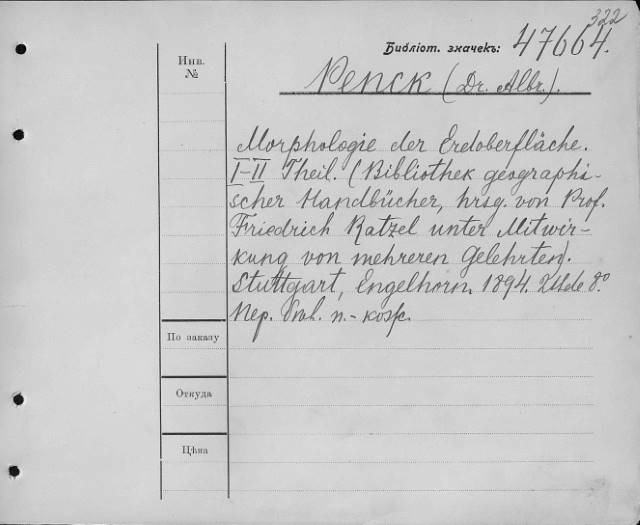 322
Библіот. значекъ: 47664.
Инв.
№
Penck (Dr. Albr.).
Morphologie der Erdoberfläche.
I-II Theil. (Bibliothek geographi-
scher Handbücher, hrsg. von Prof.
Friedrich Ratzel unter Mitwir-
kung von mehreren Gelehrten).
Stuttgart, Engelhorn. 1894. 2 8º
Пер. п.-кож.
По заказу
Откуда
Цѣна